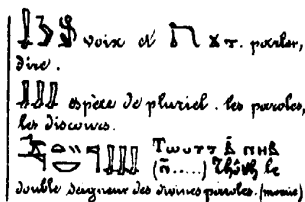 voix et parler,
dire.
espèce de pluriel. les paroles,
les discours.
Ⲧⲱⲟⲩⲧⲧ ⲃ̄ ⲛⲏⲃ
(ⲛ̄.....) Thôth le
double seigneur des divines paroles. (momie)